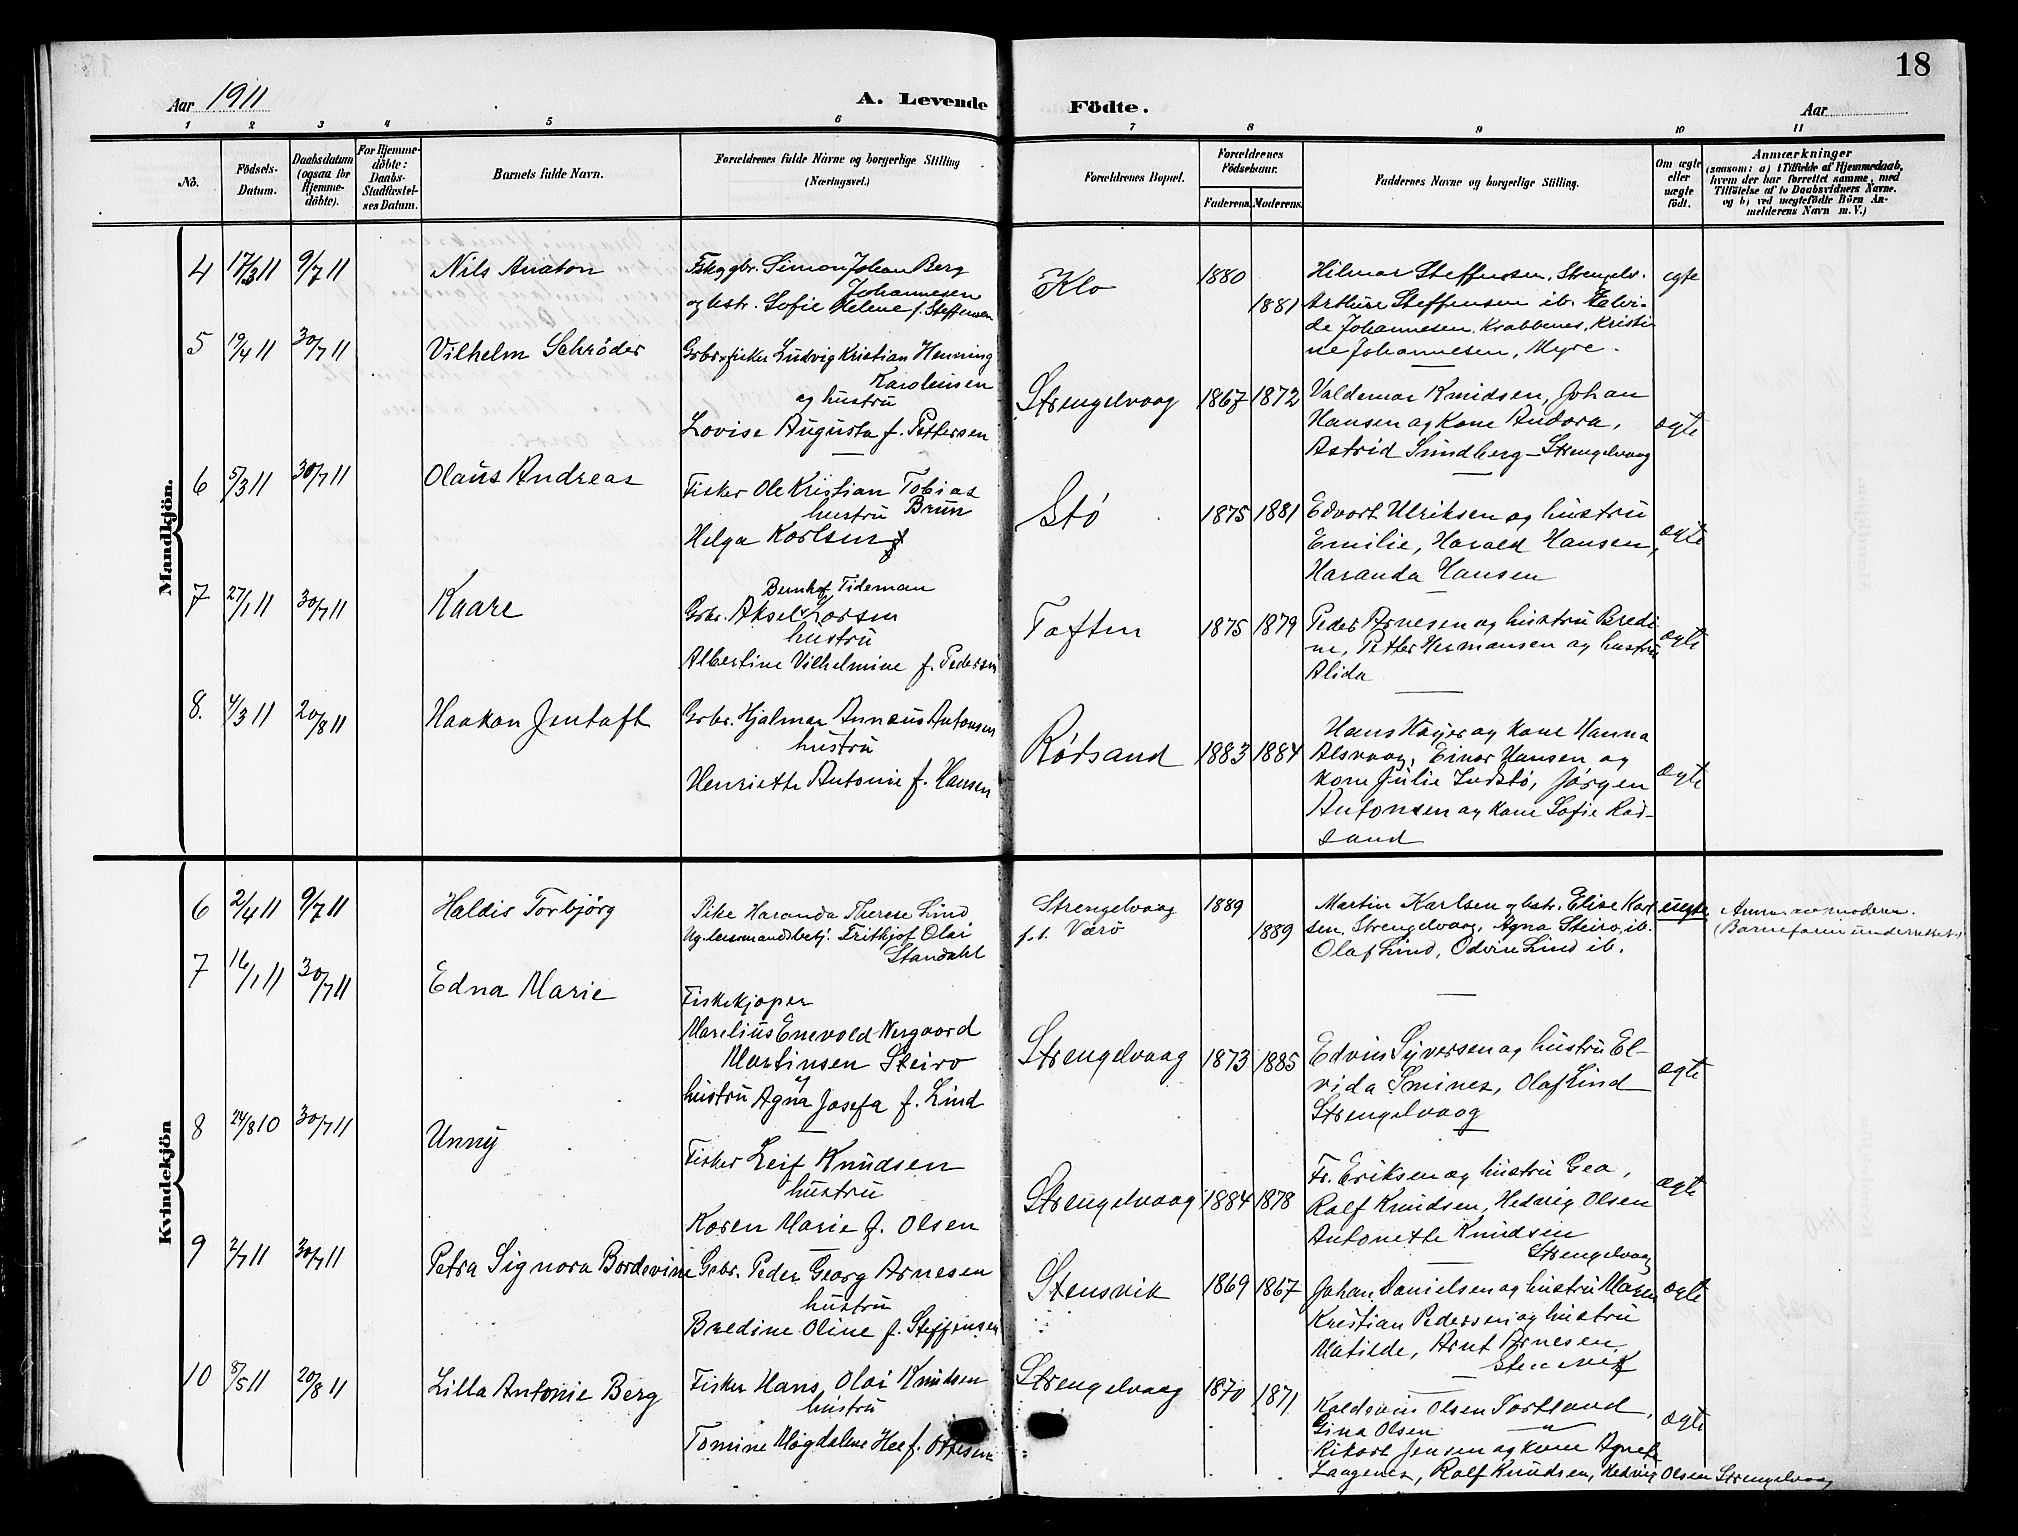 18
Aar 1911
A. Levende Födte.
Aar
1 2 3 4 5 6 7 8 9 10 11
No.
Födsels-Datum.
Daabsdatum (ogsaa for Hjemme-döbte).
For Hjemme-döbte: Daabs-Stadfæstel-ses Datum.
Barnets fulde Navn.
Forældrenes fulde Navne og borgerlige Stilling
(Næringsvei.)
Forældrenes Bopæl.
Forældrenes Födselsaar.
Faderens. Moderens.
Faddernes Navne og borgerlige Stilling.
Om ægte eller uægte födt.
Anmærkninger
(saasom: a) i Tilfælde af Hjemmedaab,
hvem der har forrettet samme, med
Tilföielse af to Daabsvidners Navne.
og b) ved uægtefödte Börn An-
melderens Navn m. V.)
Mandkjön.
4 17/3 11 9/7 11 Nils Anaton
Fsk. gbr. Simon Johan Berg
Johannesen
og hstr. Sofie Helene f. Steffensen
Klo 1880 1881
Hilmar Steffensen, Strengelv.
Arthure Steffensen ib. Elvi-
de Johannesen, Krabbenes, Kristi
ne Johannesen, Myre.
egte
5 19/4 11 30/7 11 Vilhelm Schrøder
Grbr. fisker Ludvig Kristian Henning
Karolinsen
og hustru
Lovise Augusta f. Pettersen
Strengelvaag 1867 1872
Valdemar Knudsen, Johan
Hansen og kone Andora,
Astrid Sundberg - Strengelvaag
ægte
6 5/3 11 30/7 11 Olaus Andreas
Fisker Ole Kristian Tobias
hustru Brun
Helga Karlsen
Stø 1875 1881
Edvart Ulriksen og hustru
Emilie, Harald Hansen,
Haranda Hansen
ægte
7 27/1 11 30/7 11 Kaare
Bernhof Tideman
Grbr. Aksel Larsen
hustru
Albertine Vilhelmine f. Pedersen
Toften 1875 1879
Peder Arnesen og hustru Bredi
ne, Petter Hermansen og hustru
Alida
ægte
8. 4/3 11 20/8 11 Haakon Jentoft
Grbr. Hjalmar Annæus Antonsen
hustru
Henriette Antonie f. Hansen
Rødsand 1883 1884
Hans Høyer og kone Hanna
Alsvaag, Einar Hansen og
kone Julie Indstø, Jørgen
Antonsen og kone Sofie Rød-
sand
ægte
Kvindekjön
6 2/4 11 9/7 11 Haldis Torbjørg
Pike Haranda Therese Lind
Ug. lensmandsbetj. Frithjof Olai
Standahl
Strengelvaag
f.t. Værö
1889 1889
Martin Karlsen og hstr. Elise Karl
sen, Strengelvaag, Agna Steiro, ib.
Olaf Lind, Odvin Lind ib.
uegte
Anm. av moderen.
(Barnefaren underrettet)
7 16/1 11 30/7 11 Edna Marie
Fiskekjøper
Marelius Enevold Nergaard
Martinsen Steiro
og
hustru Agna Josefa f. Lind
Strengelvaag 1873 1885
Edvin Syversen og hustru El-
vida Smines, Olaf Lind
Strengelvaag
ægte
8 24/8 10 30/7 11 Unny
Fisker Leif Knudsen
hustru
Karen Marie f. Olsen
Strengelvaag 1884 1878
Fr. Eriksen og hustru Gea,
Ralf Knudsen, Hedvig Olsen
Antonette Knudsen
Strengelvaag
ægte
9 2/7 11 30/7 11 Petra Signora Bordevine
Grbr. Peder Georg Arnesen
hustru
Bredine Oline f. Steffensen
Stensvik 1869 1867
Johan Danielsen og hustru Maren
Kristian Pedersen og hustru
Matilde, Arnt Arnesen
Stensvik
ægte
10 8/5 11 20/8 11 Lilla Antonie Berg
Fisker Hans Olai Knudsen
hustru
Tomine Magdalene Hee f. Ottesen
Strengelvaag 1870 1871
Kaldsvin Olsen Sortland,
Gina Olsen
Rikart Jensen og kone Agnete
Langenes, Ralf Knudsen, Hedvig Olsen Strengelvaag
ægte